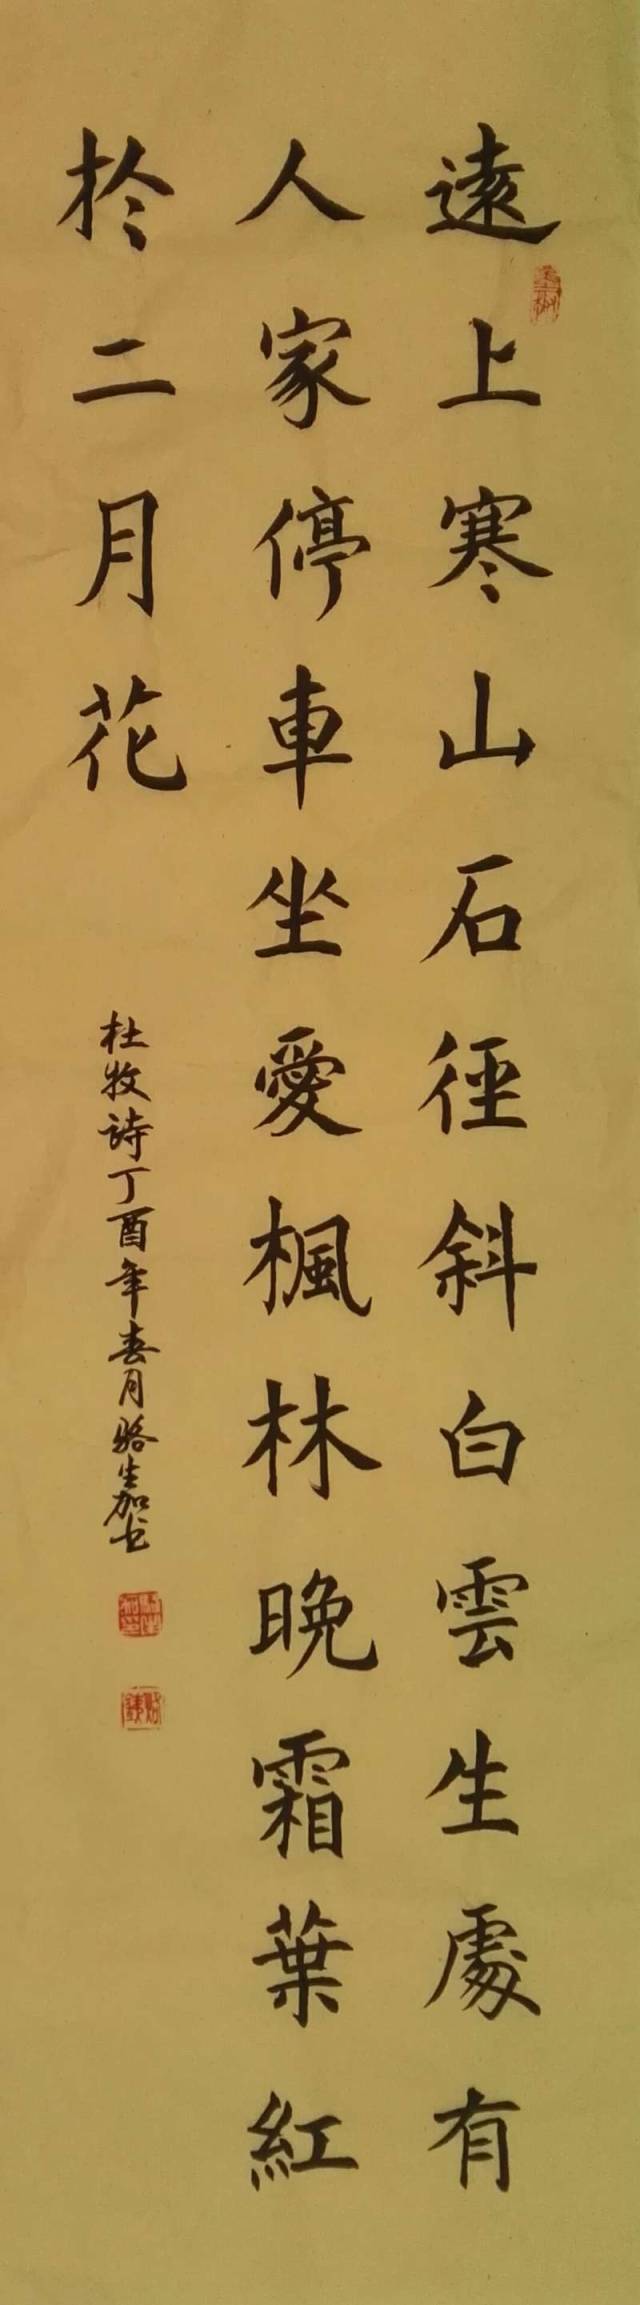 遠上寒山石徑斜白雲生處有
人家停車坐愛楓林晚霜葉紅
於二月花
杜牧詩丁酉年春月駱生加书